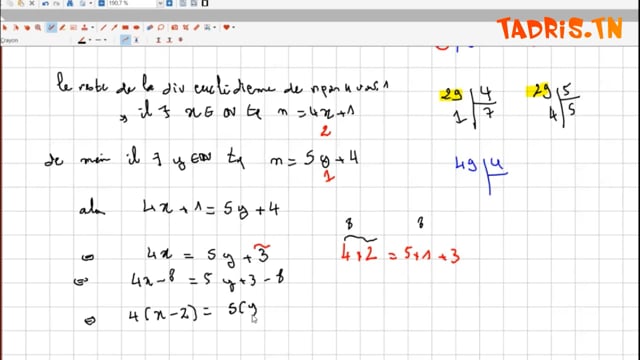 150,7 %
TADRIS.TN
Crayon
le reste de la div euclidienne de n par 4 vaut 1
il ∃ x ∈ IN tq n = 4x + 1
2
de même il ∃ y ∈ IN tq n = 5y + 4
1
alors 4x + 1 = 5y + 4
⇔ 4x = 5y + 3
⇔ 4x - 8 = 5y + 3 - 8
⇔ 4(x - 2) = 5(y
29 4
1 7
29 5
4 5
49 4
8 8
4 × 2 = 5 × 1 + 3